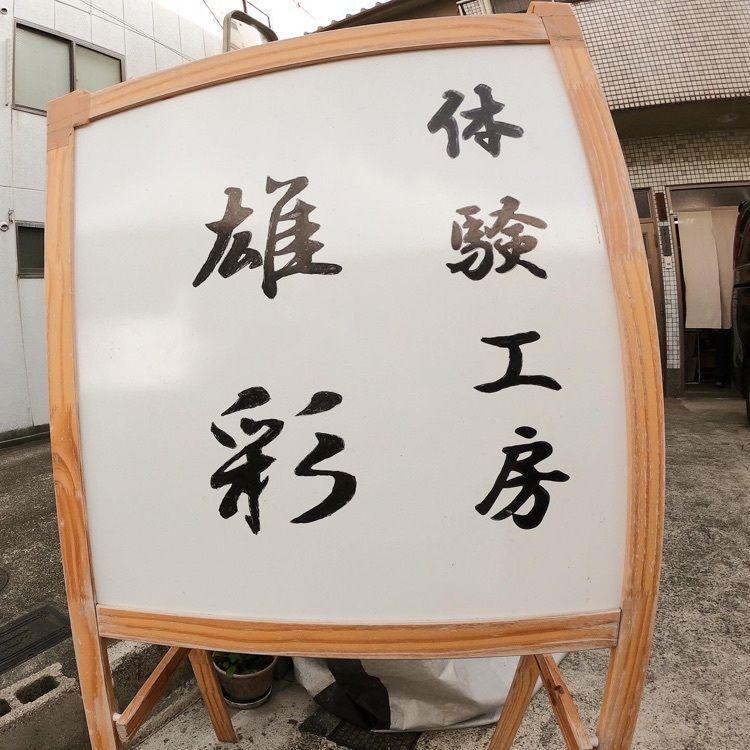 体験工房
雄彩